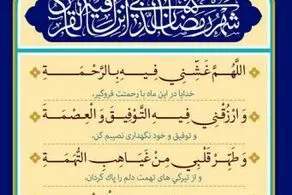 شهر رمضان الذي أنزل فيه القرآن
اَللّهُمَّ غَشِّنِي فِيهِ بِالرَّحْمَةِ
خدایا در این ماه با رحمتت فروگیر،
وَ ارْزُقْنِي فِيهِ التَّوْفِيقَ وَ الْعِصْمَةَ
و توفیق و خود نگهداری نصیبم کن،
وَ طَهِّرْ قَلْبِي مِنْ غَيَاهِبِ التُّهَمَةِ
و از تیرگی های تهمت دلم را پاک گردان،